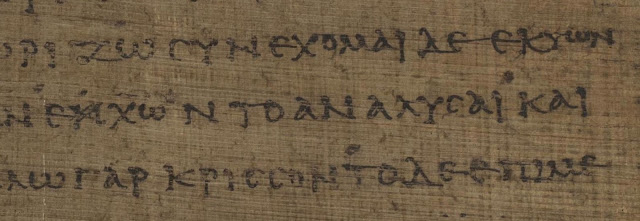 ωριζω ϲυνεχομαι δε εκ των
ν εχων το αναλυϲαι και
λω γαρ κριϲϲον το δε επιμε